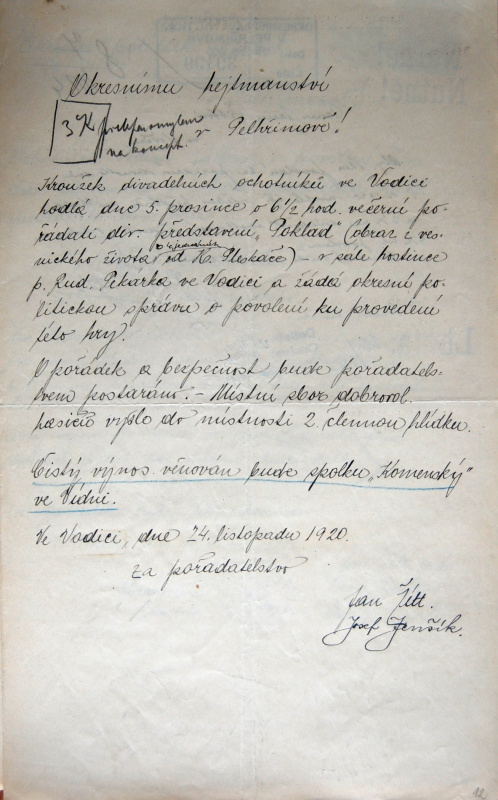 Okresnímu hejtmanství
3 K
na koncept.
v Pelhřimově!
Kroužek divadelních ochotníků ve Vodici
hodlá dne 5. prosince o 6 1/2 hod. večerní po-
řádati div. představení „Poklad" (obraz z ves-
nického života od K. Pleskače) – v sále hostince
p. Rud. Pekárka ve Vodici a žádá okresní po-
litickou správu o povolení ku provedení
této hry.
O pořádek a bezpečnost bude pořadatels-
tvem postaráno. – Místní sbor dobrovol.
hasičů vyšle do místnosti 2. člennou hlídku.
Čistý výnos věnován bude spolku „Komenský"
ve Vídni.
Ve Vodici, dne 24. listopadu 1920.
Za pořadatelstvo
Jan
Josef Jenšík.
12